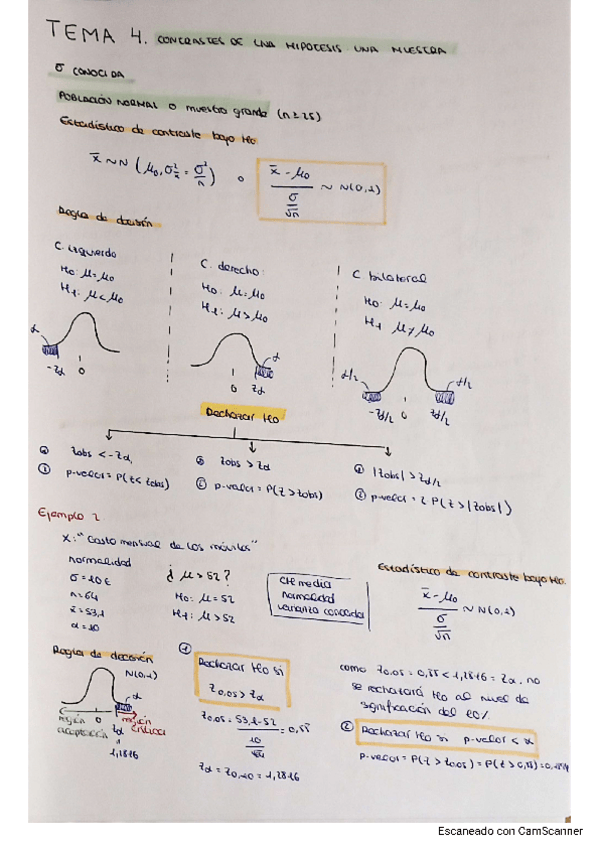 TEMA 4. CONTRASTES DE UNA HIPOTESIS UNA MUESTRA
σ CONOCIDA
POBLACIÓN NORMAL O muestra grande (n≥25)
Estadístico de contraste bajo H0
x̄ ~ N (μ0, σ²x̄ = σ²/n) o (x̄ - μ0)/(σ/√n) ~ N(0,1)
Regla de decisión
C. izquierdo
H0: μ = μ0
H1: μ < μ0
α
-zα 0
C. derecho:
H0: μ = μ0
H1: μ > μ0
α
0 zα
C bilateral
H0: μ = μ0
H1 μ ≠ μ0
α/2 α/2
-zα/2 0 zα/2
Rechazar H0
① zobs < -zα,
② p-valor = P(z < zobs)
① zobs > zα
② p-valor = P(z > zobs)
① |zobs| > zα/2
② p-valor = 2 P(z > |zobs|)
Ejemplo 1
X: "Gasto mensual de los móviles"
normalidad
σ = 10 €
n = 64
x̄ = 53,1
α = 10
¿ μ > 52 ?
H0: μ = 52
H1: μ > 52
CH media
normalidad
varianza conocida
Estadístico de contraste bajo H0.
(x̄ - μ0)/(σ/√n) ~ N(0,1)
Regla de decisión
N(0,1)
α
región aceptación 0 zα región crítica
1,2816
①
Rechazar H0 si
zobs > zα
zobs = (53,1-52)/(10/√64) = 0,88
zα = z0,10 = 1,2816
como zobs = 0,88 < 1,2816 = zα, no
se rechazará H0 al nivel de
significación del 10%.
② Rechazar H0 si p-valor < α
p-valor = P(z > zobs) = P(z > 0,88) =
Escaneado con CamScanner